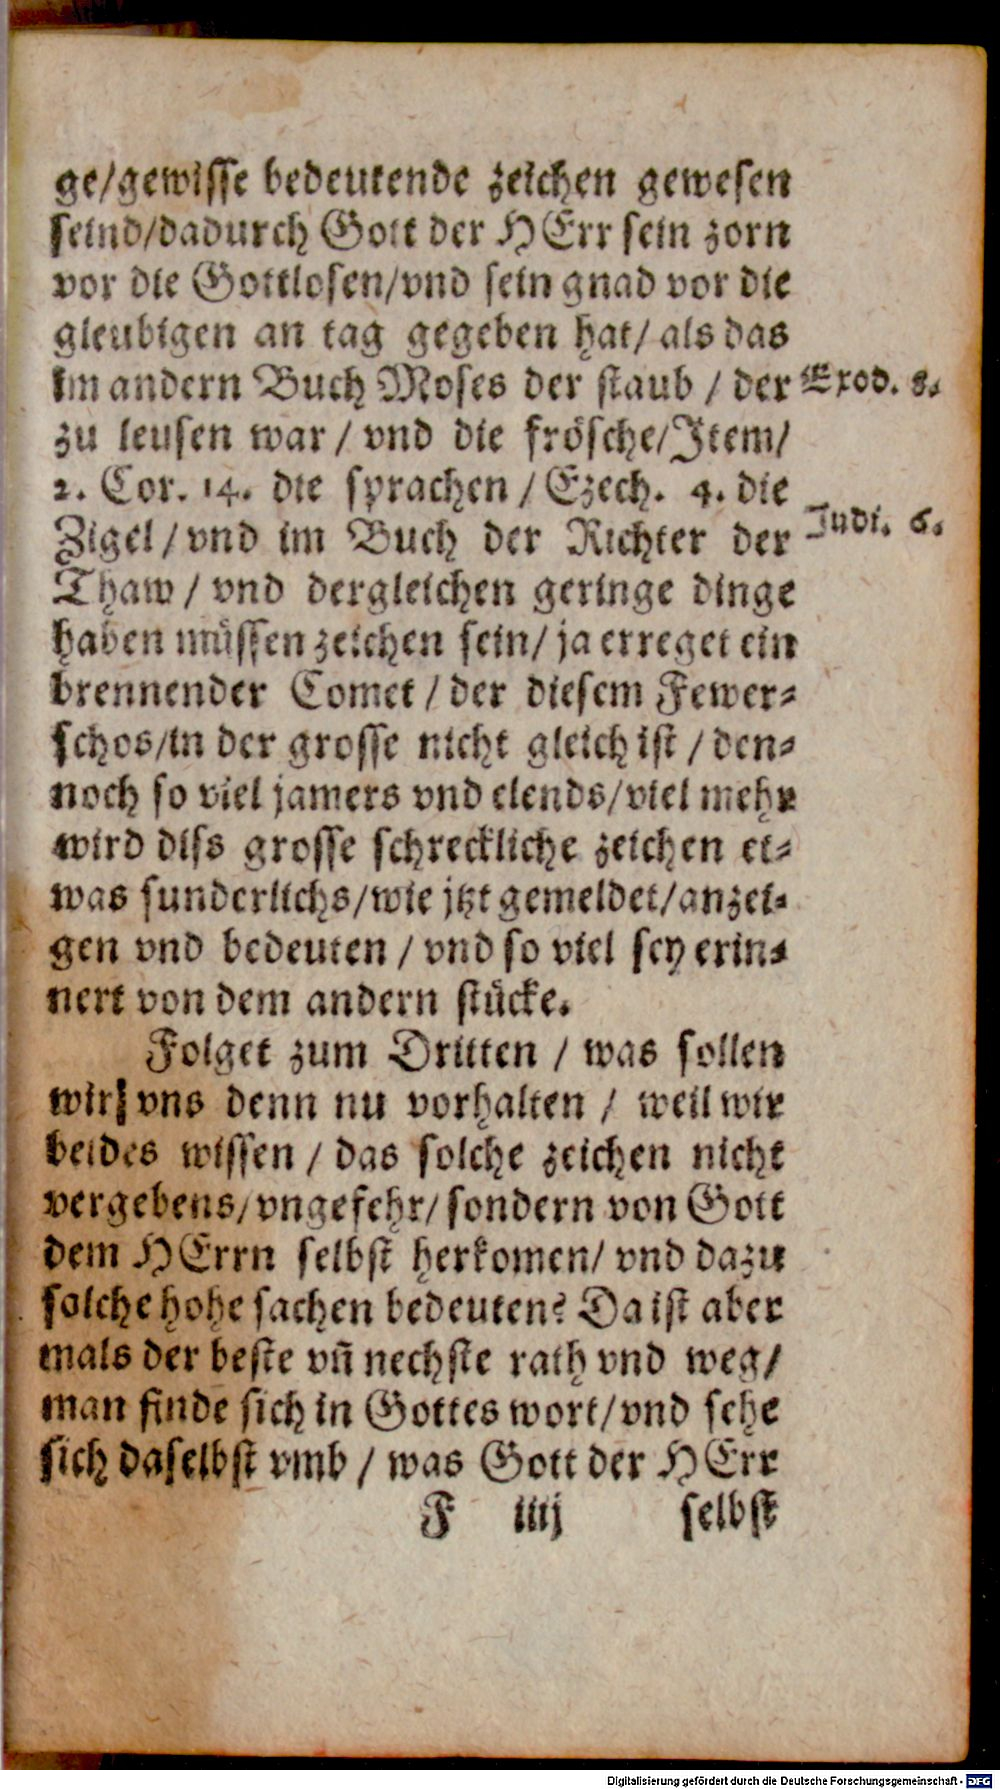 ge/gewisse bedeutende zeichen gewesen
seind/dadurch Gott der HErr sein zorn
vor die Gottlosen/vnd sein gnad vor die
gleubigen an tag gegeben hat/ als das
im andern Buch Moses der staub / der
Exod. 8.
zu leusen war / vnd die frösche/Item/
2. Cor. 14. die sprachen / Ezech. 4. die
Zigel / vnd im Buch der Richter der
Judi. 6.
Thaw / vnd dergleichen geringe dinge
haben müssen zeichen sein/ ja erreget ein
brennender Comet / der diesem Fewer-
schos/in der grosse nicht gleich ist / den-
noch so viel jamers vnd elends/viel mehr
wird diss grosse schreckliche zeichen et-
was sunderlichs/wie jtzt gemeldet/anzei-
gen vnd bedeuten / vnd so viel sey erin-
nert von dem andern stücke.
Folget zum Dritten / was sollen
wir vns denn nu vorhalten / weil wir
beides wissen / das solche zeichen nicht
vergebens/vngefehr/ sondern von Gott
dem HErrn selbst herkomen/ vnd dazu
solche hohe sachen bedeuten? Da ist aber
mals der beste vñ nechste rath vnd weg/
man finde sich in Gottes wort/vnd sehe
sich daselbst vmb / was Gott der HErr
F iiij selbst
Digitalisierung gefördert durch die Deutsche Forschungsgemeinschaft - DFG